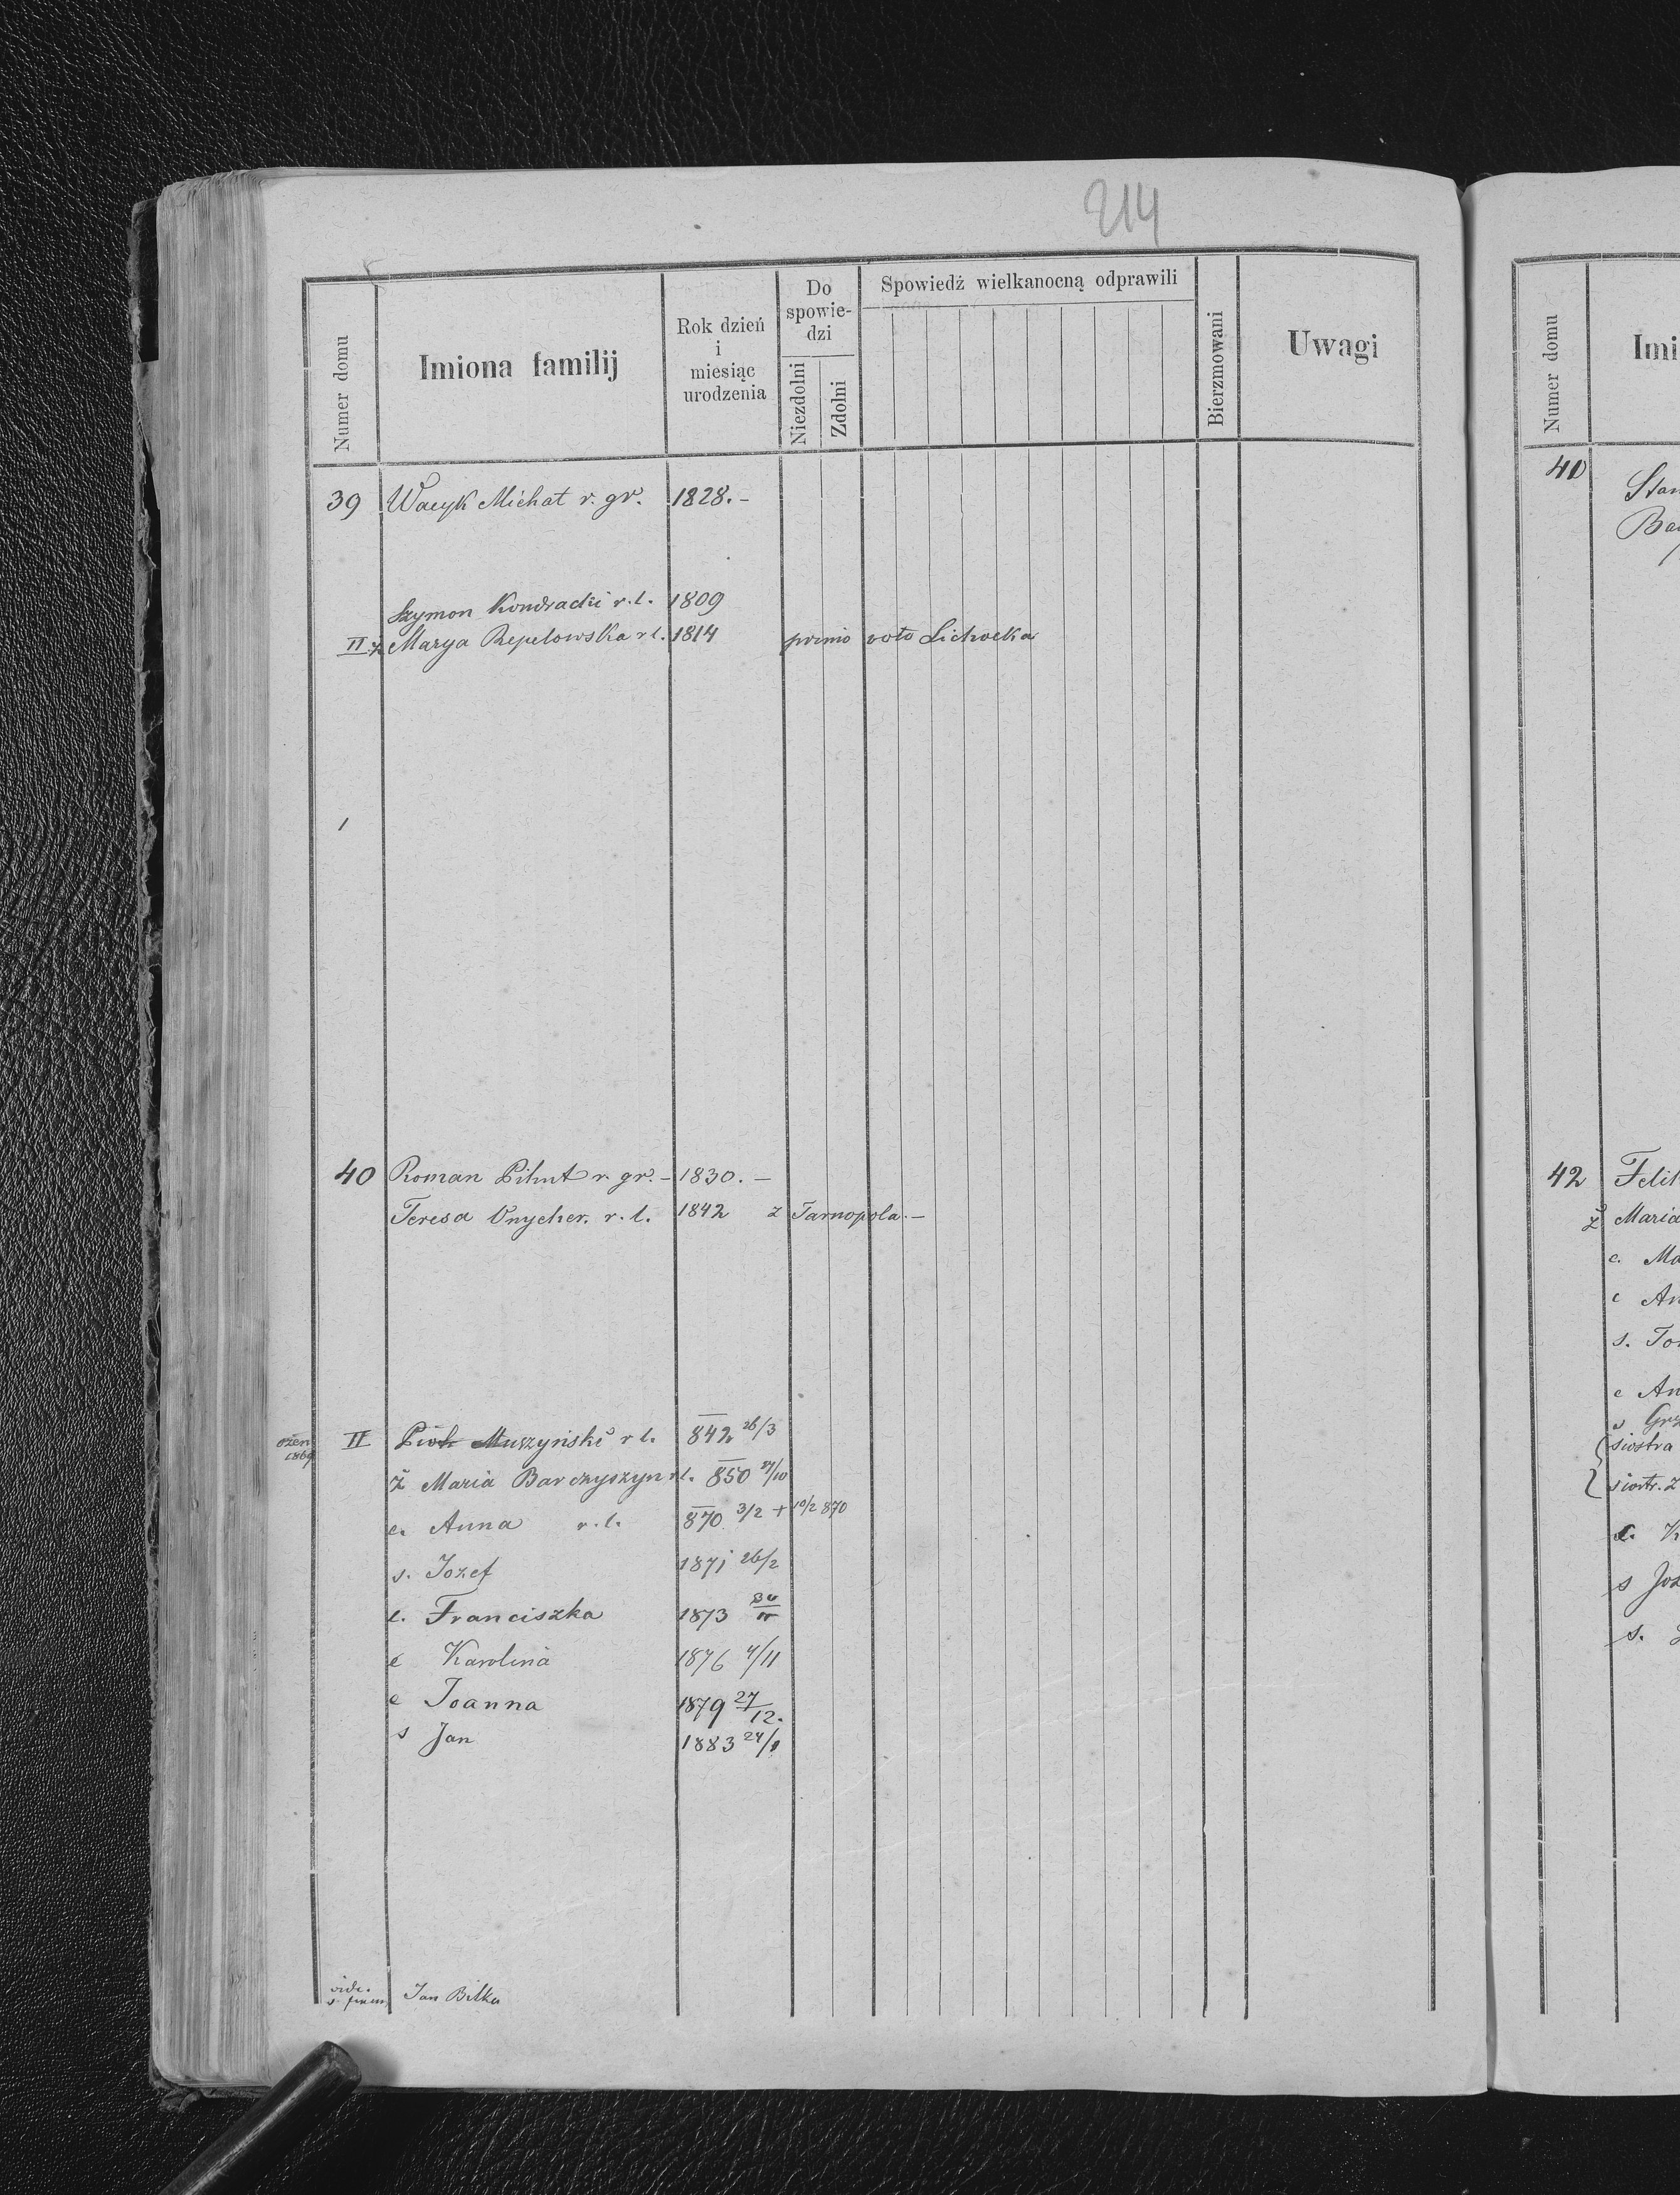 214
Numer domu
Imiona familij
Rok dzień
i
miesiąc
urodzenia
Do
spowie-
dzi
Niezdolni
Zdolni
Spowiedź wielkanocną odprawili
Bierzmowani
Uwagi
39 Wacyk Michał r. gr. 1828. -
Szymon Kondracki r. l. 1809
II. ż Marya Repelowska r l. 1814 primo voto Lichocka
40 Roman Pihut r. gr. - 1830. -
Teresa Onycher. r. l. 1842 z Tarnopola. -
ożen
1869
II Piotr Muszyński r l. 842 26/3
ż Maria Barczyszyn r l. 850 /10
c. Anna r. l. 870 3/2 + 10/2 870
s. Jozef 1871 26/2
c. Franciszka 1873
c Karolina 1876 4/11
c Joanna 1879 27/12.
s Jan 1883 24/
vide.
Jan Bilka
Numer domu
Imi
40
Stan
42
Ż Maria
c. Ma
c An
s.
c An
s Grz
siostra
siostr. z
c. K
s Joz
s.